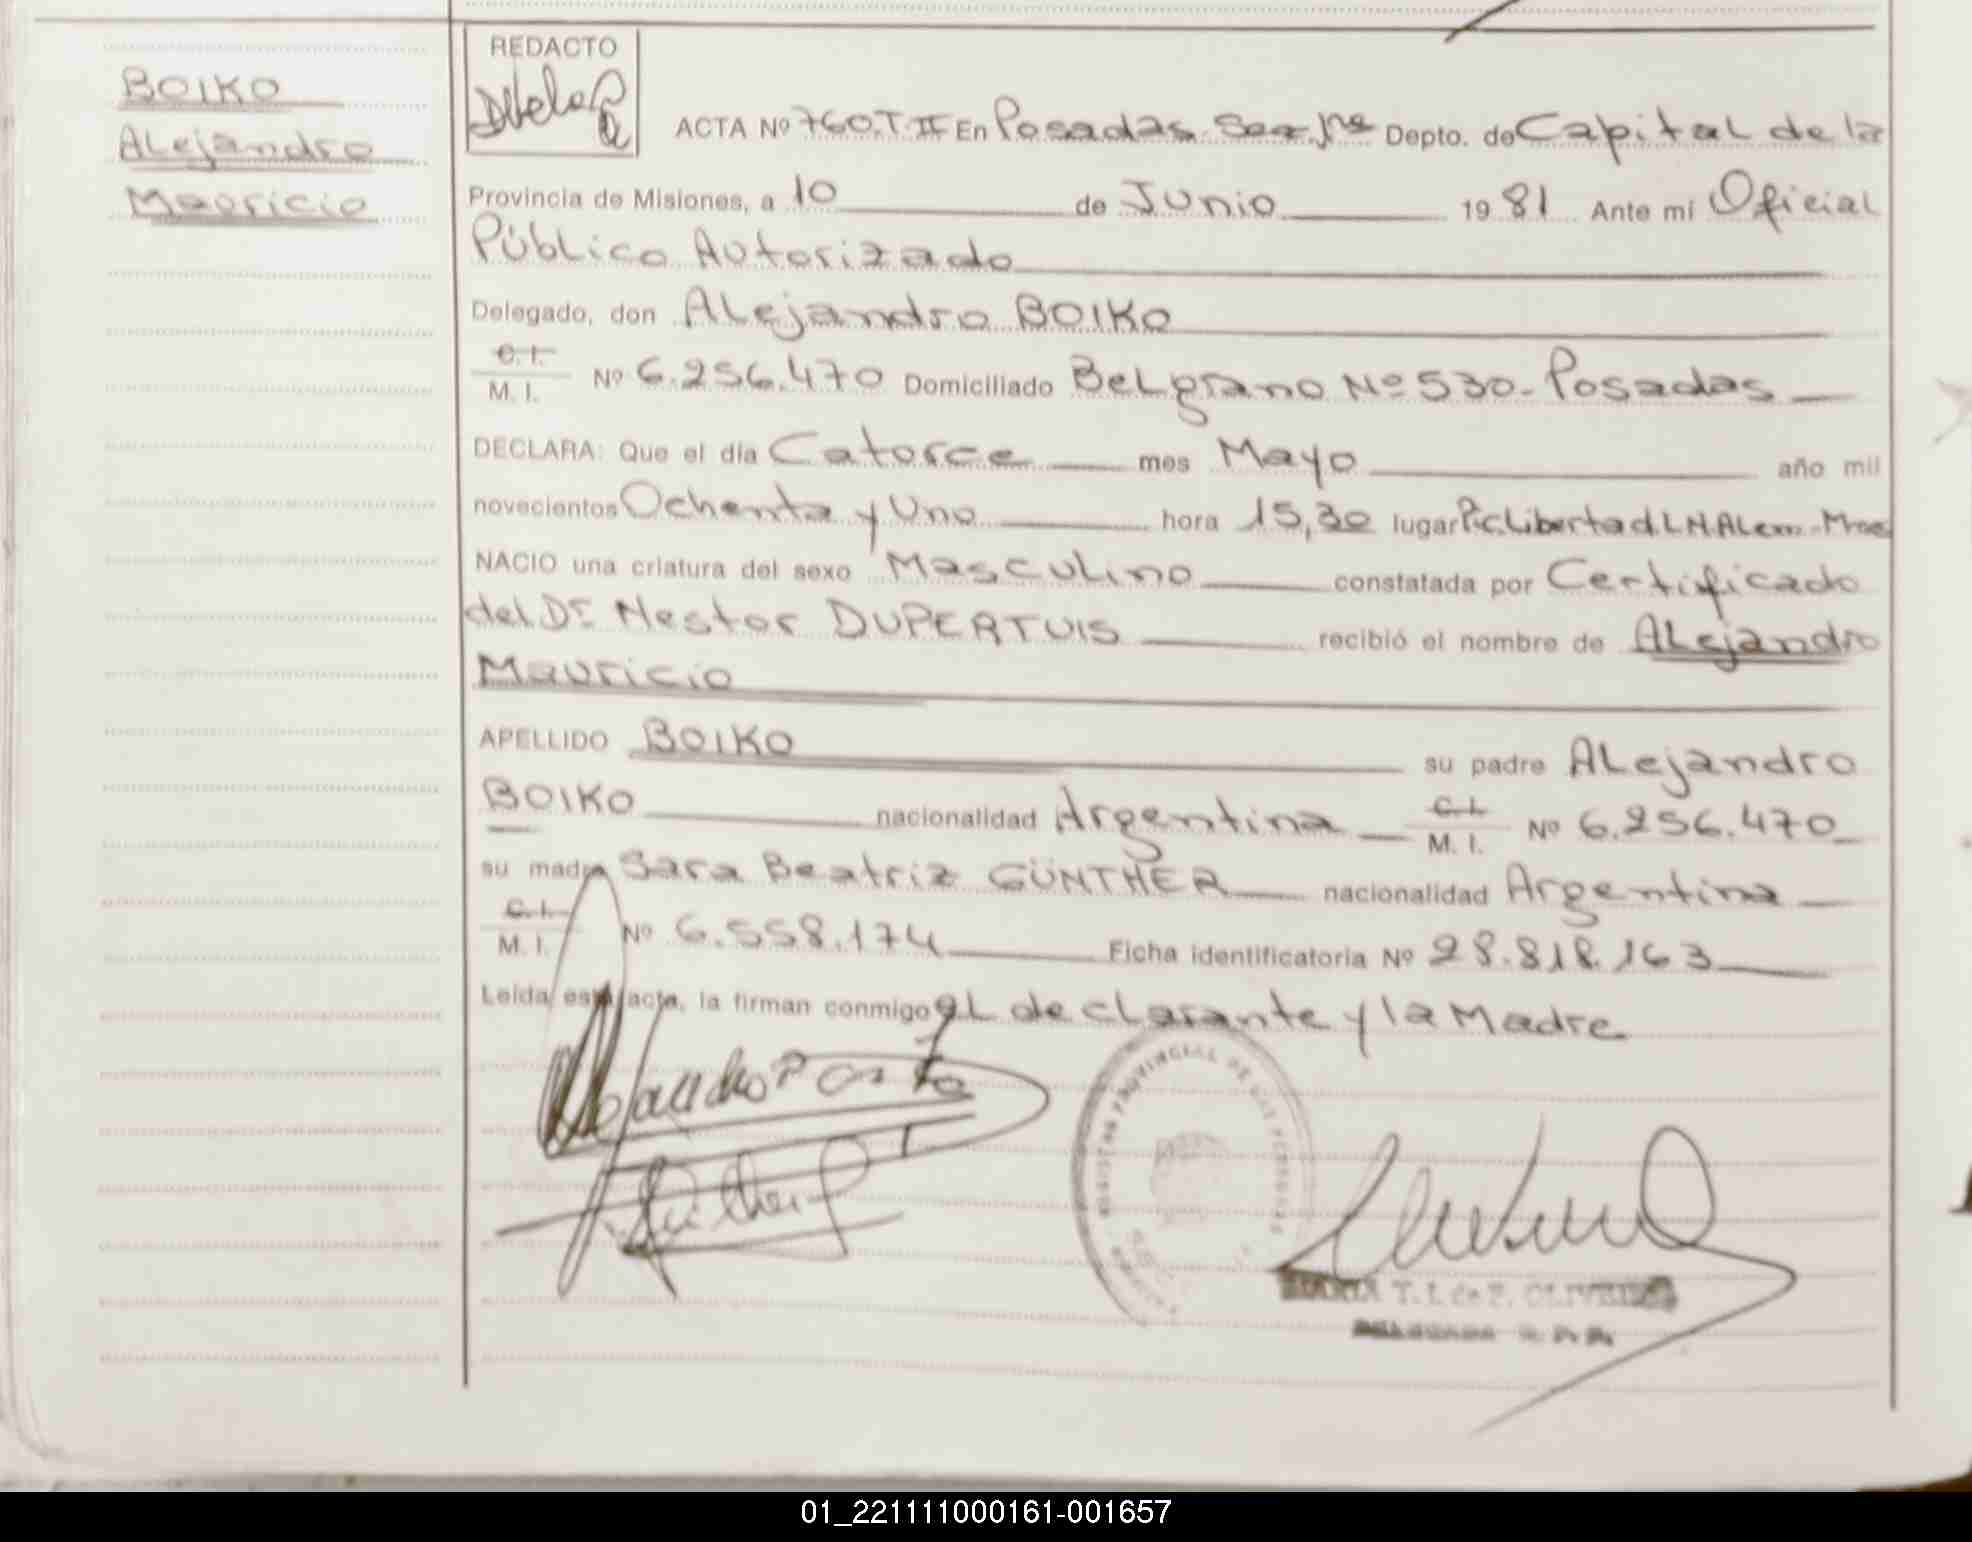 BOIKO
Alejandro
Mauricio
REDACTO
ACTA Nº 760.T.II En Posadas Depto. de Capital de la
Provincia de Misiones, a 10 de Junio 19 81 Ante mi Oficial
Público Autorizado
Delegado, don Alejandro BOIKO
C. I.
M. I. Nº 6.256.470 Domiciliado Belgrano Nº 530- Posadas
DECLARA: Que el día Catorce mes Mayo año mil
novecientos Ochenta y Uno hora 15,30 lugar P.C.Libertad L.N.Alem-Mnes
NACIO una criatura del sexo Masculino constatada por Certificado
del Dr Nestor DUPERTUIS recibió el nombre de Alejandro
Mauricio
APELLIDO BOIKO su padre Alejandro
BOIKO nacionalidad Argentina C. I. M. I. Nº 6.256.470
su madre Sara Beatriz GÜNTHER nacionalidad Argentina
C. I.
M. I. Nº 6.558.174 Ficha identificatoria Nº 28.818.163
Leída esta acta, la firman conmigo el declarante y la Madre
REGISTRO PROVINCIAL DE LAS PERSONAS
MARIA T. L. de P. OLIVEIRA
DELEGADA R. P. P.
01_221111000161-001657